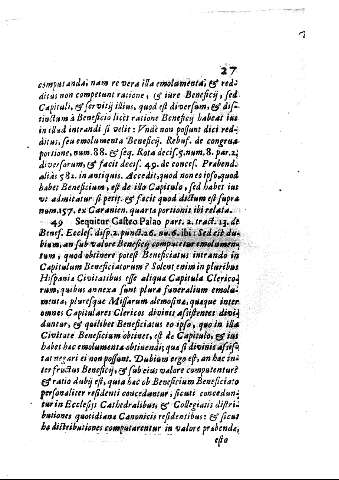 27
computanda; nam re vera illa emolumenta, & red-
ditus non competunt ratione, & iure Beneficij, sed
Capituli, & servitij illius, quod est diversum, & dis-
tinctum à Beneficio licèt ratione Beneficij habeat ius
in illud intrandi si velit: Vndè non possunt dici red-
ditus, seu emolumenta Beneficij. Rebuf. de congrua
portione, num. 88. & seq. Rota decis. 5. num. 8. par. 2.
diversorum, & facit decis. 49. de conces. Prabend.
aliàs 582. in antiquis. Accedit, quod non eo ipso, quod
habet Beneficium, est de illo Capitulo, sed habet ius
vt admitatur si petit, & facit quod dictum est supra
num. 157. ex Garanien. quarta portionis ibi relata.
49 Sequitur Gasteo Palao part. 2. tract. 13. de
Benef. Eccles. disp. 2. punct. 26. nu. 6. ibi: Sed est du-
bium, an sub valore Beneficij computetur emolumen-
tum, quod obtinere potest Beneficiatus intrando in
Capitulum Beneficiatorum? Solent enim in pluribus
Hispania Civitatibus esse aliqua Capitula Clerico-
rum, quibus annexa sunt plura funeralium emolu-
menta, pluresque Missarum elemosina, quaque inter
omnes Capitulares Clericos divinis assistentes divi-
duntur, & quilibet Beneficiatus eo ipso, quo in illa
Civitate Beneficium obtinet, est de Capitulo, & ius
habet hac emolumenta obtinendi; qua si divinis assis-
tat negari ei non possunt. Dubium ergo est, an hac in-
ter fructus Beneficij, & sub eius valore computentur?
& ratio dubij est, quia hac ob Beneficium Beneficiato
personaliter residenti conceduntur, sicuti concedun-
tur in Ecclesijs Cathedralibus, & Collegiatis distri-
butiones quotidiana Canonicis residentibus: & sicut
ha distributiones computarentur in valore prabenda,
esto